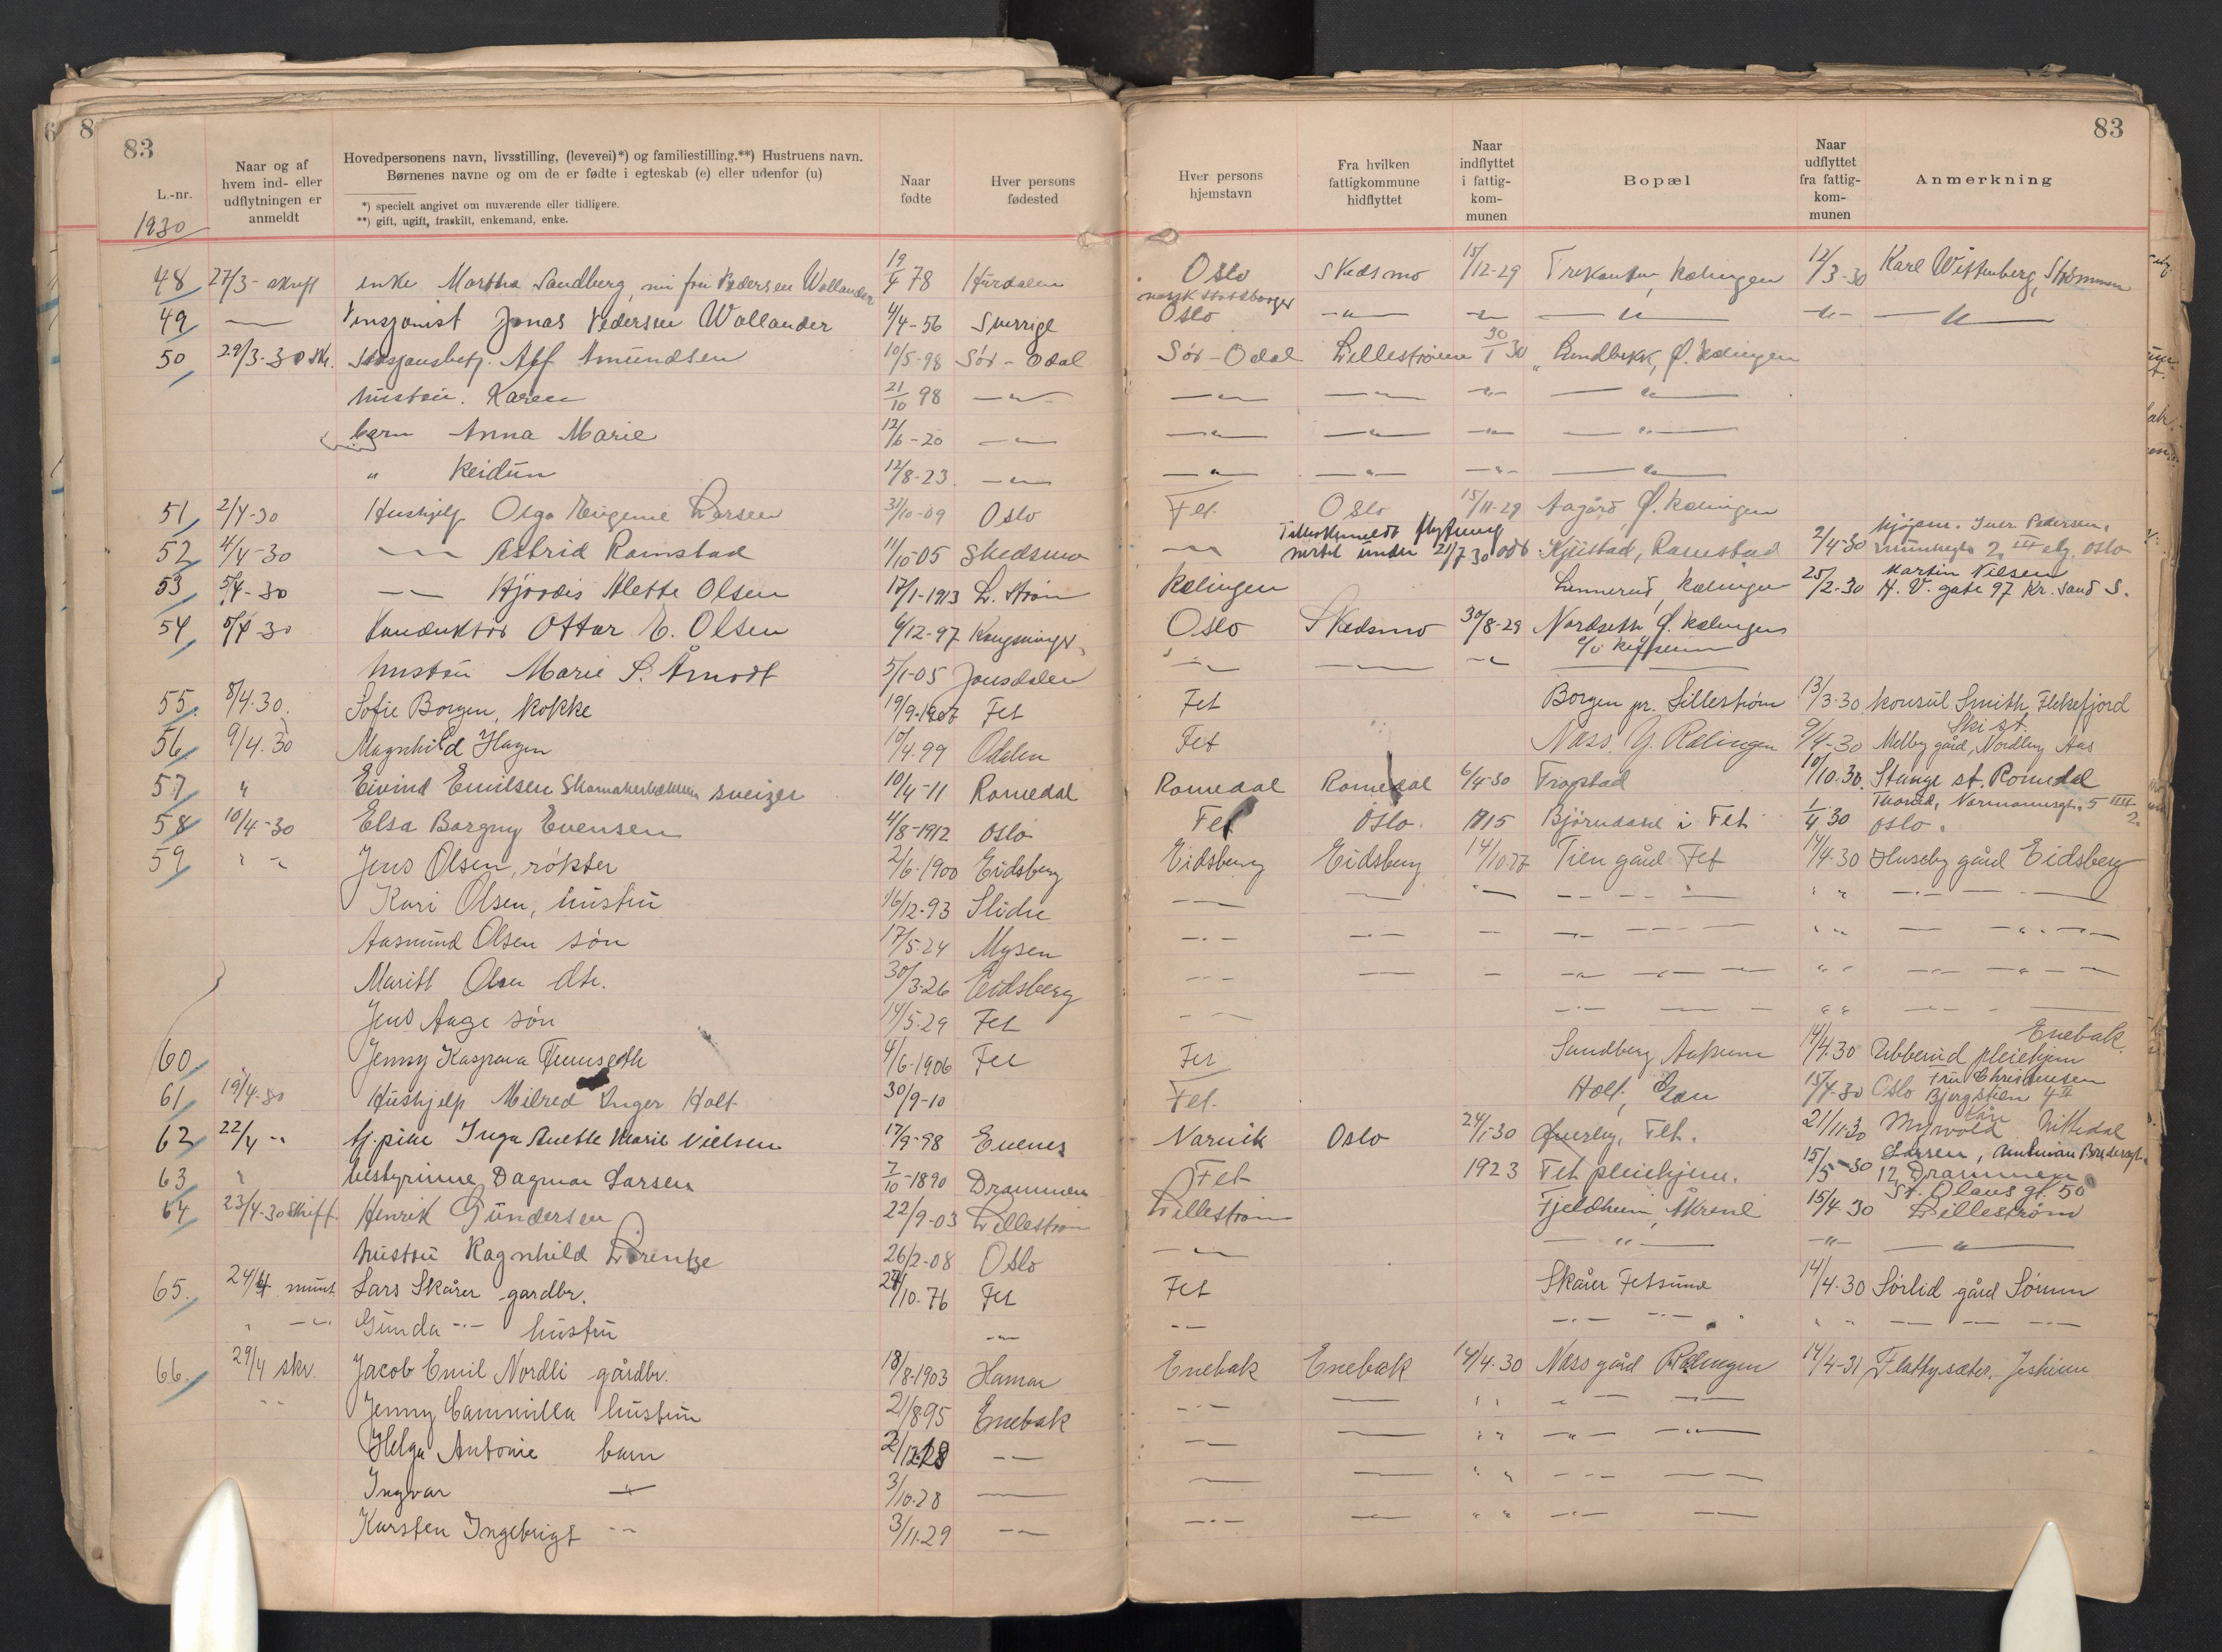 83
83
L.-nr.
Naar og af hvem ind- eller udflytningen er anmeldt
Hovedpersonens navn, livsstilling, (levevei)*) og familiestilling.**) Hustruens navn.
Børnenes navne og om de er fødte i egteskab (e) eller udenfor (u)
*) specielt angivet om nuværende eller tidligere.
**) gift, ugift, fraskilt, enkemand, enke.
Naar fødte
Hver persons fødested
Hver persons hjemstavn
Fra hvilken fattigkommune hidflyttet
Naar indflyttet i fattig-kom-munen
Bopæl
Naar udflyttet fra fattig-kom-munen
Anmerkning
1930
48 27/3 - enke Martha Sandberg, Pedersen Wallander 19/4 78 Oslo Skedsmo 15/12-29 12/3-30 Karl Wittenberg, Strømmen
norsk statsborger
49 — Jonas Pedersen Wallander 4/4-56 Sverrige Oslo —"— —"— —"— —"— —"—
50 29/3-30 skr. Alf Amundsen 10/5-98 Sör-Odal Sör-Odal Lillestrøm 30/1 30 Lundbekk, Ø. Rælingen
hustru. Karen 21/10 98 —"— —"— —"— —"— —"—
barn Anna Marie 12/6-20 —"— —"— —"— —"— —"—
" Reidun 12/8-23 —"— —"— —"— —"— —"—
51 2/4-30 Hushjelp Olga Eugenie Larsen 31/10-09 Oslo Fet Oslo 15/11-29 Aagård Ø. Rælingen
52 4/4-30 —"— Astrid Ramstad 11/10-05 Skedsmo —"— under 21/7 30 Ramstad 2/4-30 Iver Pedersen, Oslo
53 5/4-30 —"— Hjördis Alette Olsen 17/1-1913 L. strøm Rælingen Lunnerud, Rælingen 25/2-30 Martin Nilsen H. V. gate 97 Kr. sand S.
54 5/4-30 Konduktör Ottar E. Olsen 6/12-97 Kongsvinger Oslo Skedsmo 30/8-29 Nordseth Ø. Rælingen
hustru Marie S. Åmodt 5/1-05 —"— —"— —"—
55. 8/4.30. Sofie Borgen, kokke 19/9-1907 Fet Fet Borgen pr. Lillestrøm 13/3-30 konsul Smith, Flekefjord
56 9/4.30 Magnhild Hagen 10/4.99 Odalen Fet Næss, Y. Rælingen 9/4-30 Ski st. Melby gård, Nordby Aas
57 " Eivind Emilsen sveizer 10/4-11 Romedal Romedal Romedal 6/4-30 Frogstad 10/10.30. Stange st. Romedal
58 10/4-30 Elsa Borgny Evensen 4/8-1912 Oslo Fet Oslo. 1915 Björndal i Fet 1/4 30 Normannsgt. 5 III Oslo.
59 " " Jens Olsen, røkter 2/6-1900 Eidsberg Eidsberg Eidsberg 14/10.27 Tien gård Fet 14/4.30 Huseby gård Eidsberg
Kari Olsen, hustru 16/12-93 Slidre
Aasmund Olsen søn 17/5-24 Mysen
Maritt Olsen dtr. 30/3.26 Eidsberg
Jens Aage søn 14/5.29 Fet
60 Jenny Kaspara 4/6-1906 Fet Fet Sandberg 14/4.30 Ubberud pleiehjem Enebak.
61 19/4-30 Hushjelp Milred Inger Holt 30/9-10 Fet. Holt, Gan 15/4-30 Oslo Fru Christensen Bjergstien 4 II
62 22/4 -"- tj.pike Inga Anette Marie Nielsen 17/9-98 Evenes Narvik Oslo 24/1-30 Qverby, Fet. 21/11-30 Myrvold Nittedal
63 " bestyrinne Dagmar Larsen 7/10-1890 Drammen Fet 1923 Fet pleiehjem. 15/5-30 Larsen, 12, Drammen
64 23/4-30 skiftl. Henrik Gundersen 22/9-03 Lillestrøm Lillestrøm Fjeldheim, 15/4-30 St. Olavs gt. 50 Lillestrøm
hustru Ragnhild Lorentze 26/2-08 Oslo —"— —"— —"— —"—
65. 24/4 munt. Lars Skårer gardbr. 24/10.76 Fet Fet Skårer Fetsund 14/4.30 Sørlid gård Sørum
" -"- Gunda -"- hustru -"-
66. 29/4 skr. Jacob Emil Nordli gårdbr. 18/8-1903 Hamar Enebak Enebak 14/4.30 Næss gård Rælingen 14/4-31 Jesheim
Jenny Cammilla hustru 21/8 95 Enebak
Helga Antonie barn —
Ingvar —"— 3/10-28 —
Karsten Ingebrigt -"- 3/11.29 —